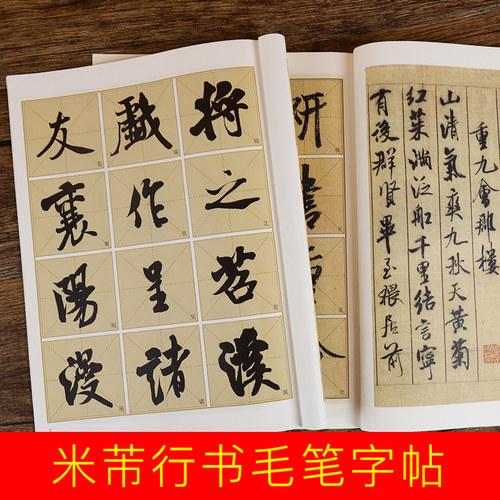 将之苕溪
戲作呈諸
友襄陽漫
研
重九會郡樓
山清氣爽九秋天黃菊
紅茱滿泛船千里結言寧
有後群賢畢至猥居前
米芾行书毛笔字帖